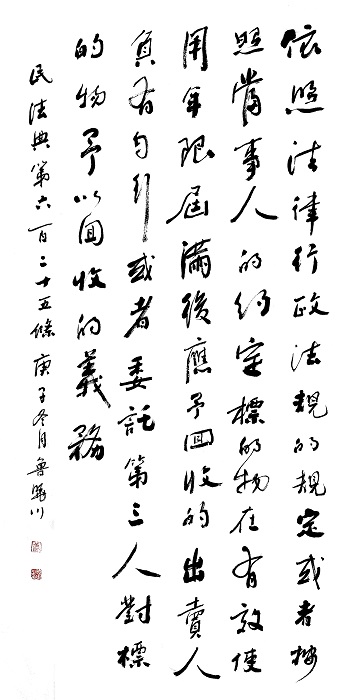 依照法律行政法規的規定或者按
照當事人的約定標的物在有效使
用年限屆滿後應予回收的出賣人
負有自行或者委託第三人對標
的物予以回收的義務
民法典第六百二十五條 庚子冬月 魯川